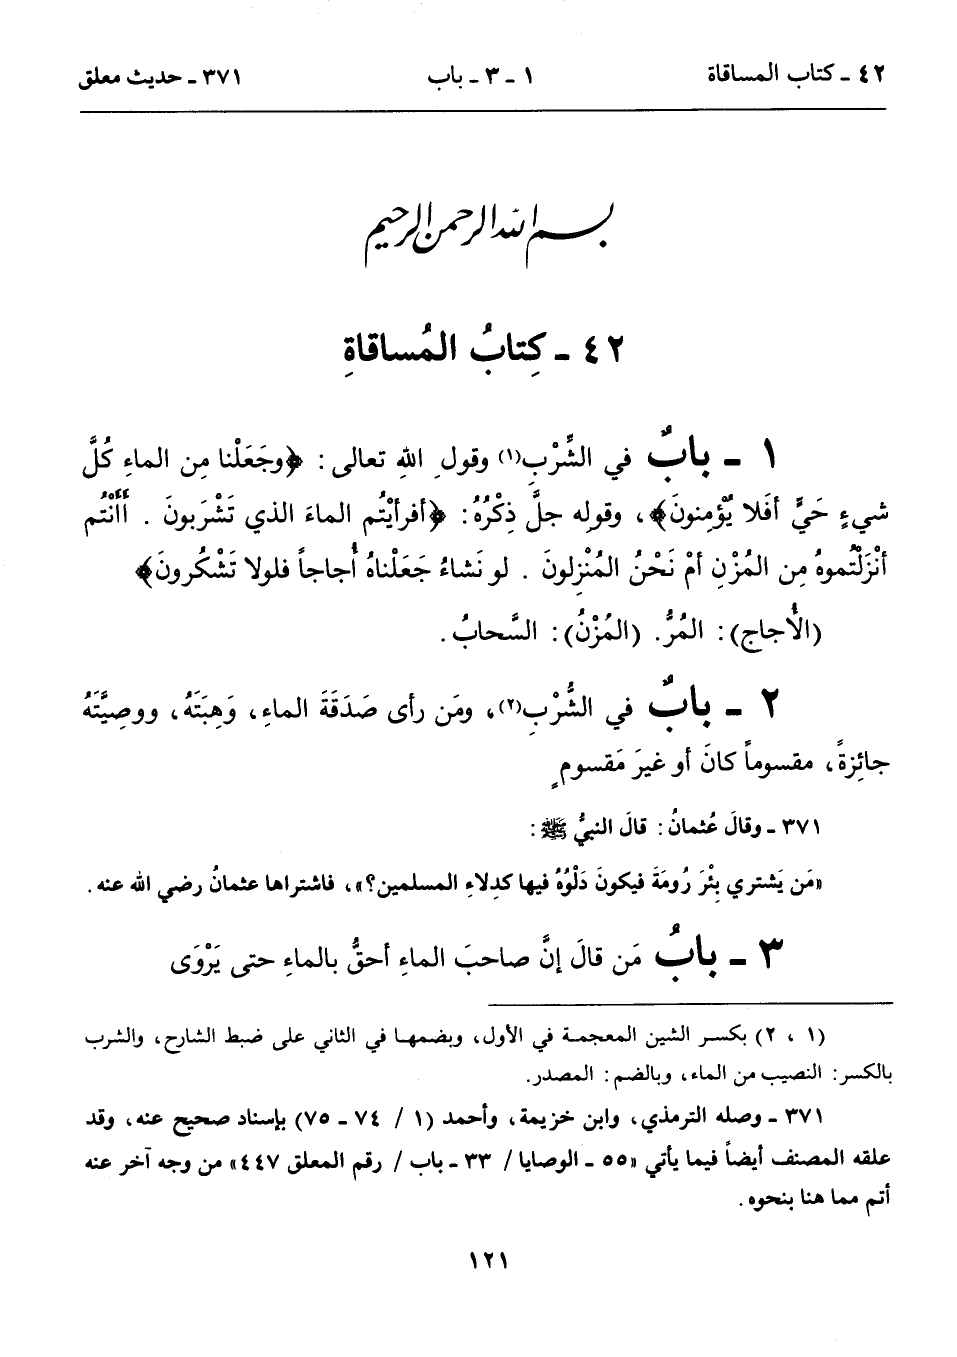 ٤٢ ـ كتاب المساقاة
١ ـ ٣ ـ باب
٣٧١ ـ حديث معلق
بسم الله الرحمن الرحيم
٤٢ ـ كِتابُ المُساقاةِ
١ ـ بابٌ في الشِّرْبِ(١) وقولِ اللهِ تعالى: ﴿وجَعَلْنا مِن الماءِ كُلَّ
شيءٍ حَيٍّ أفَلا يُؤمِنونَ﴾، وقولِه جلَّ ذِكْرُهُ: ﴿أفرأيْتُم الماءَ الذي تَشْرَبونَ . أأنْتُم
أنْزَلْتُموهُ مِن المُزْنِ أمْ نَحْنُ المُنْزِلونَ . لو نَشاءُ جَعَلْناهُ أُجاجاً فلولا تَشْكُرونَ﴾
(الأُجاج): المُرُّ. (المُزْنُ): السَّحابُ.
٢ ـ بابٌ في الشُّرْبِ(٢)، ومَن رأى صَدَقَةَ الماءِ، وَهِبَتَهُ، ووصِيَّتَهُ
جائِزةً، مقسوماً كانَ أو غيرَ مَقسومٍ
٣٧١ ـ وقالَ عُثمانُ: قالَ النبيُّ ﷺ:
«مَن يَشتري بِئْرَ رُومَةَ فيكونَ دَلْوُهُ فيها كدِلاءِ المسلمين؟»، فاشتراها عثمانُ رضي الله عنه.
٣ ـ بابُ مَن قالَ إنَّ صاحبَ الماءِ أحقُّ بالماءِ حتى يَرْوَى
(١ ، ٢) بكسر الشين المعجمة في الأول، وبضمها في الثاني على ضبط الشارح، والشرب
بالكسر: النصيب من الماء، وبالضم: المصدر.
٣٧١ ـ وصله الترمذي، وابن خزيمة، وأحمد (١ / ٧٤ ـ ٧٥) بإسناد صحيح عنه، وقد
علقه المصنف أيضاً فيما يأتي «٥٥ ـ الوصايا / ٣٣ ـ باب / رقم المعلق ٤٤٧» من وجه آخر عنه
أتم مما هنا بنحوه.
١٢١